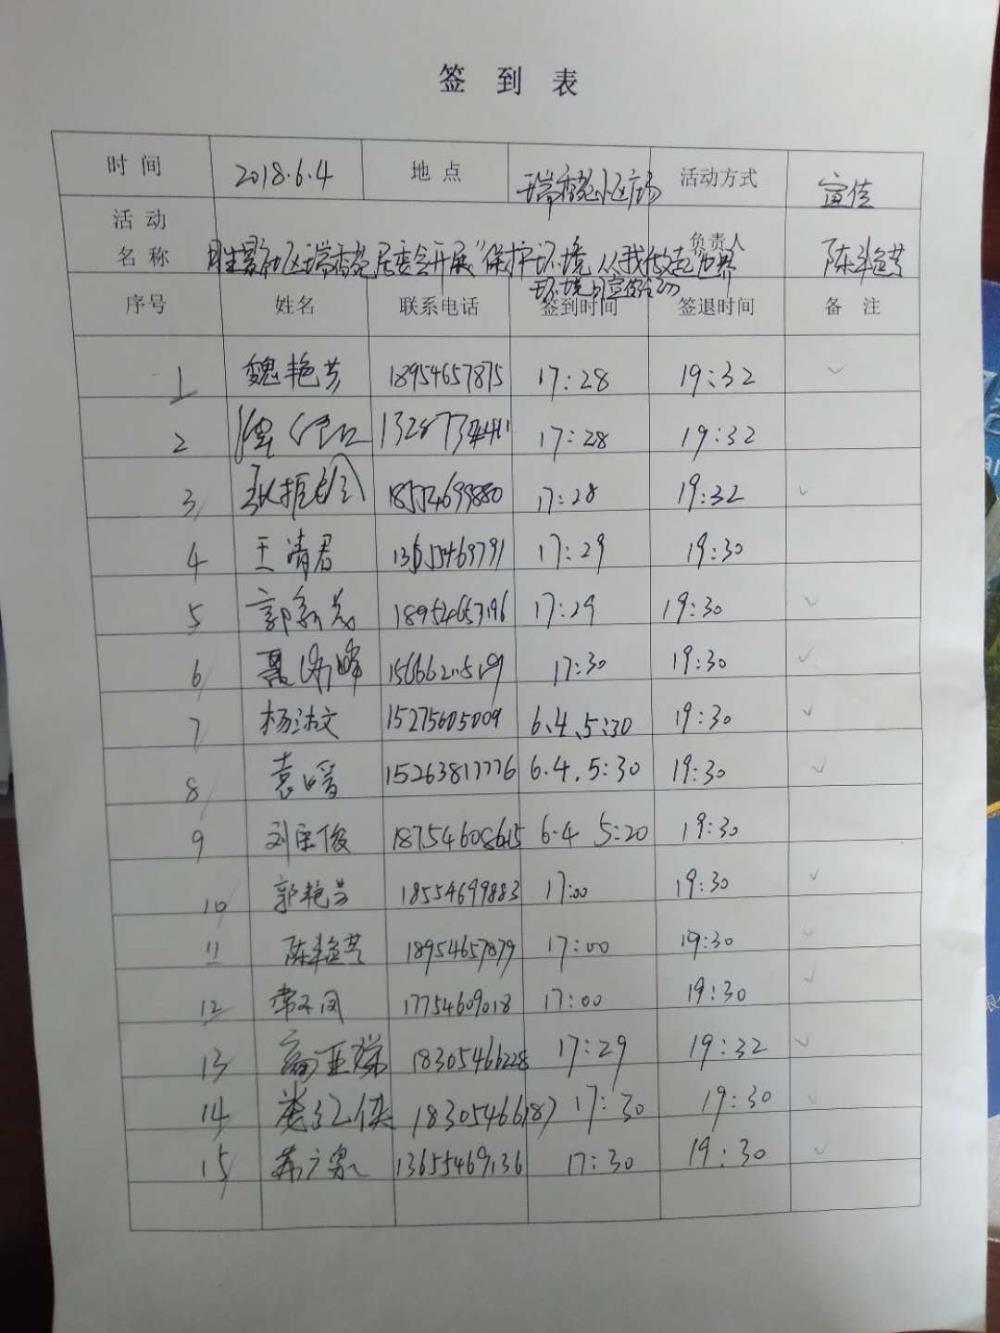 签 到 表
时 间 2018.6.4 地 点 瑞香苑小区广场 活动方式 宣传
活 动 名 称 社区瑞香苑居委会开展"保护环境 从我做起"世界 负责人 陈
环境日宣传活动
序号 姓名 联系电话 签到时间 签退时间 备 注
1 魏艳芳 18954657875 17:28 19:32 ✓
2 17:28 19:32
3 18554699880 17:28 19:32 ✓
4 王清君 17:29 19:30
5 郭 18954657196 17:29 19:30 ✓
6 17:30 19:30 ✓
7 杨淑文 15275605009 6.4.5:30 19:30 ✓
8 袁 15263817776 6.4.5:30 19:30 ✓
9 刘 俊 18754608615 6.4 5:20 19:30
10 郭艳芳 18554699883 17:00 19:30 ✓
11 陈 18954657879 17:00 19:30 ✓
12 17754609018 17:00 19:30 ✓
13 18305466228 17:29 19:32 ✓
14 娄红侠 18305466187 17:30 19:30 ✓
15 13655469136 17:30 19:30 ✓